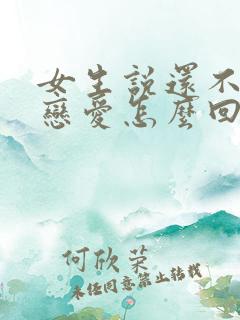 女生說還不
戀愛怎麼回
何欣荣
未经同意禁止转载